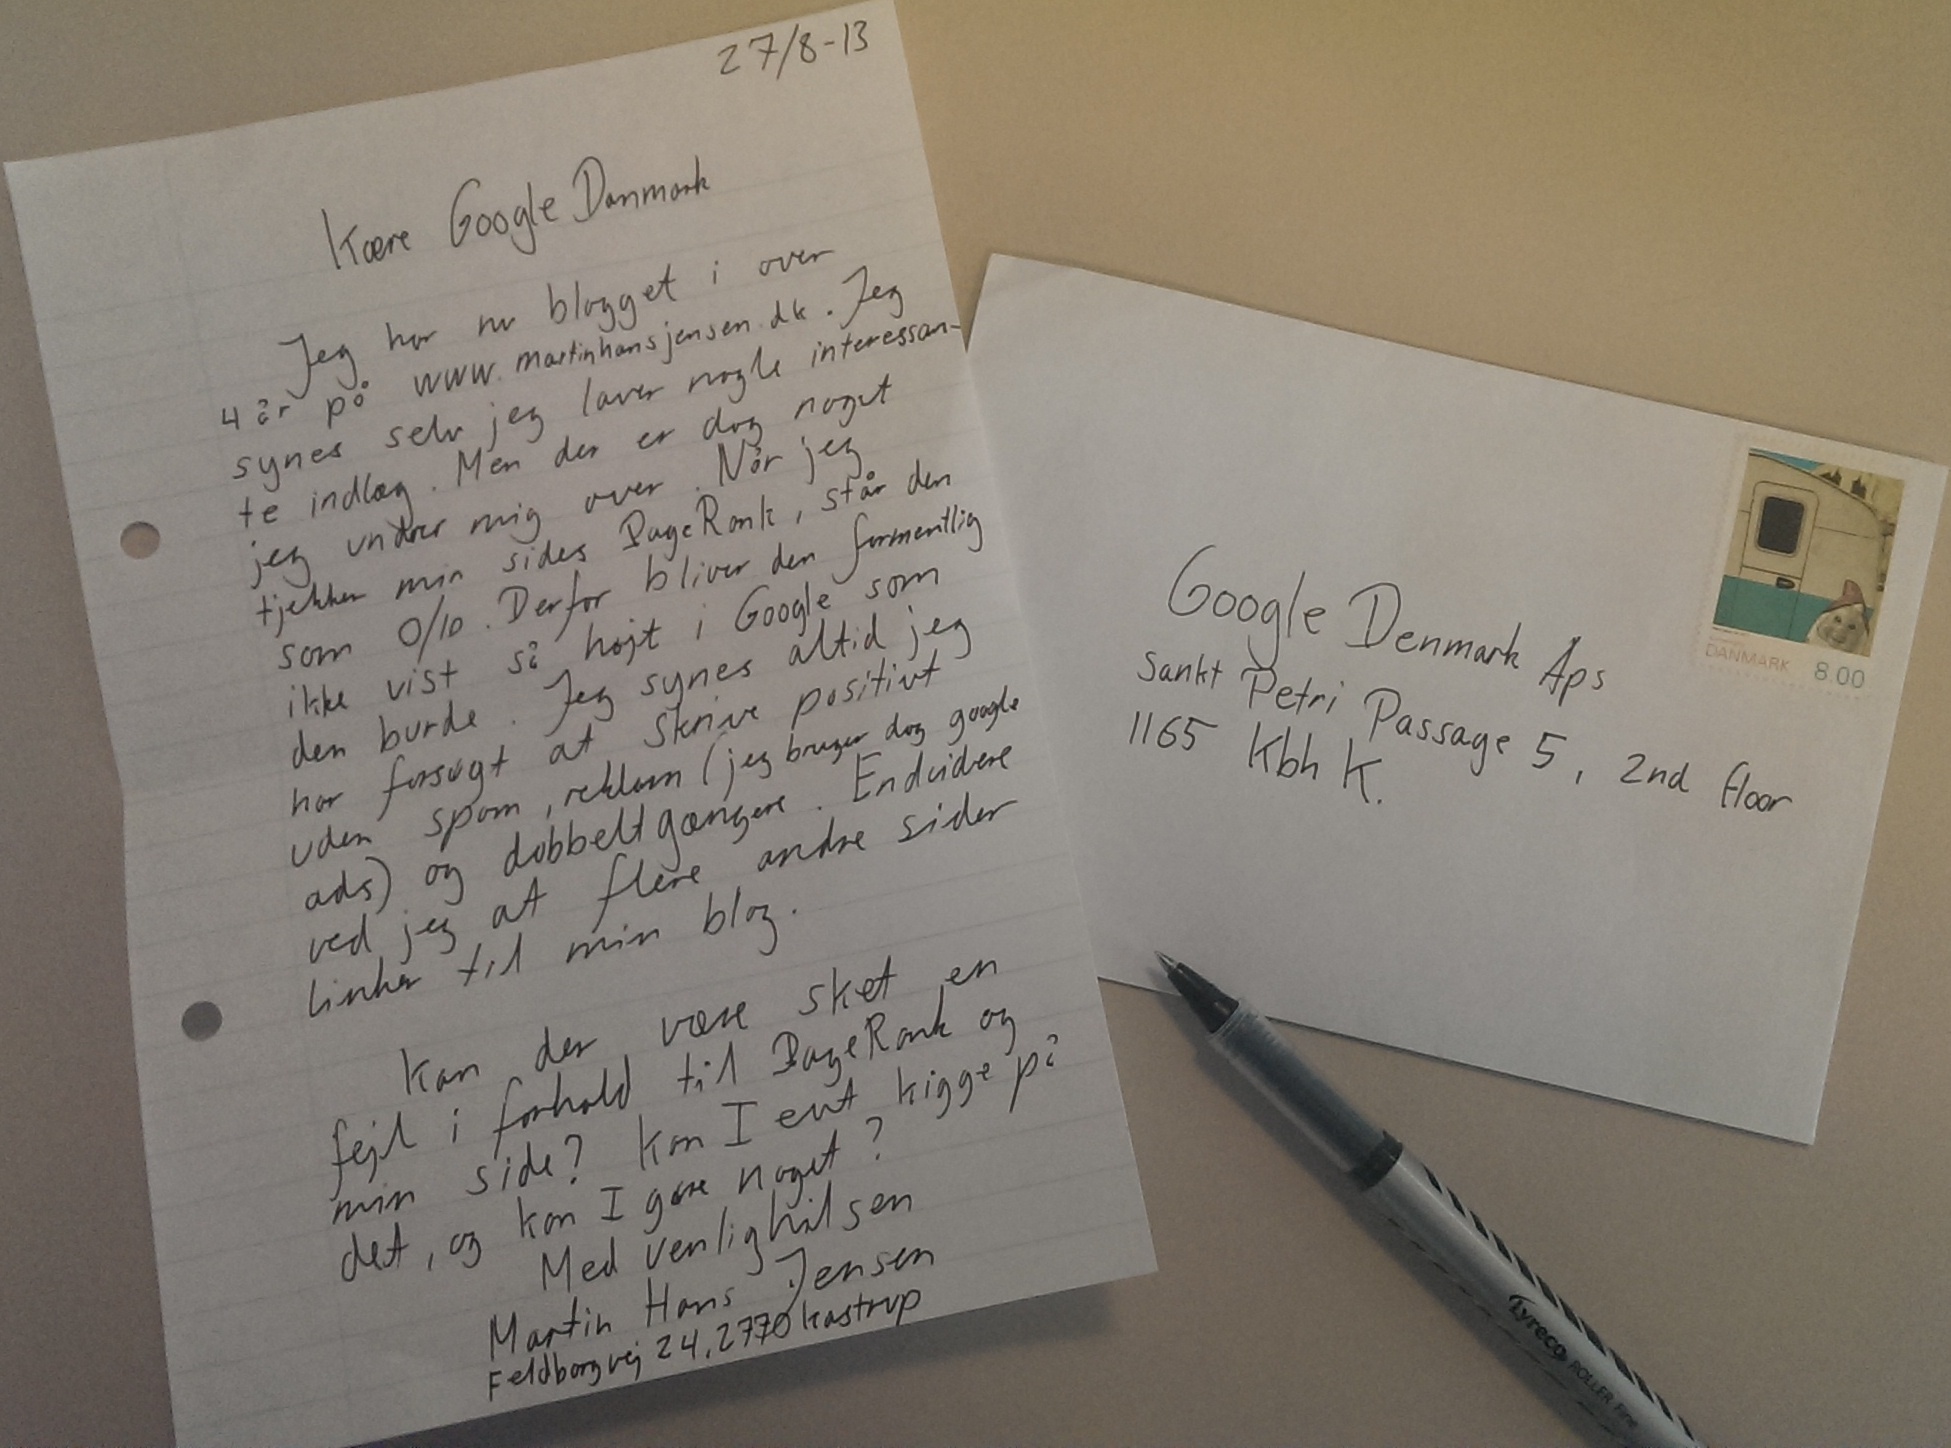 27/8-13
Kære Google Danmark
Jeg har nu blogget i over
4 år på www.martinhansjensen.dk. Jeg
synes selv jeg laver nogle interessan-
te indlæg. Men der er dog noget
jeg undrer mig over. Når jeg
tjekker min sides PageRank, står den
som 0/10. Derfor bliver den formentlig
ikke vist så højt i Google som
den burde. Jeg synes altid jeg
har forsøgt at skrive positivt
uden spam, reklam (jeg bruger dog google
ads) og dobbeltgængere. Endvidere
ved jeg at flere andre sider
linker til min blog.
Kan der være sket en
fejl i forhold til PageRank og
min side? Kan I evt kigge på
det, og kan I gøre noget?
Med venlig hilsen
Martin Hans Jensen
Feldborgvej 24, 2770 Kastrup
Google Denmark Aps
Sankt Petri Passage 5, 2nd floor
1165 Kbh K.
DANMARK 8.00
Lyreco ROLLER Fine